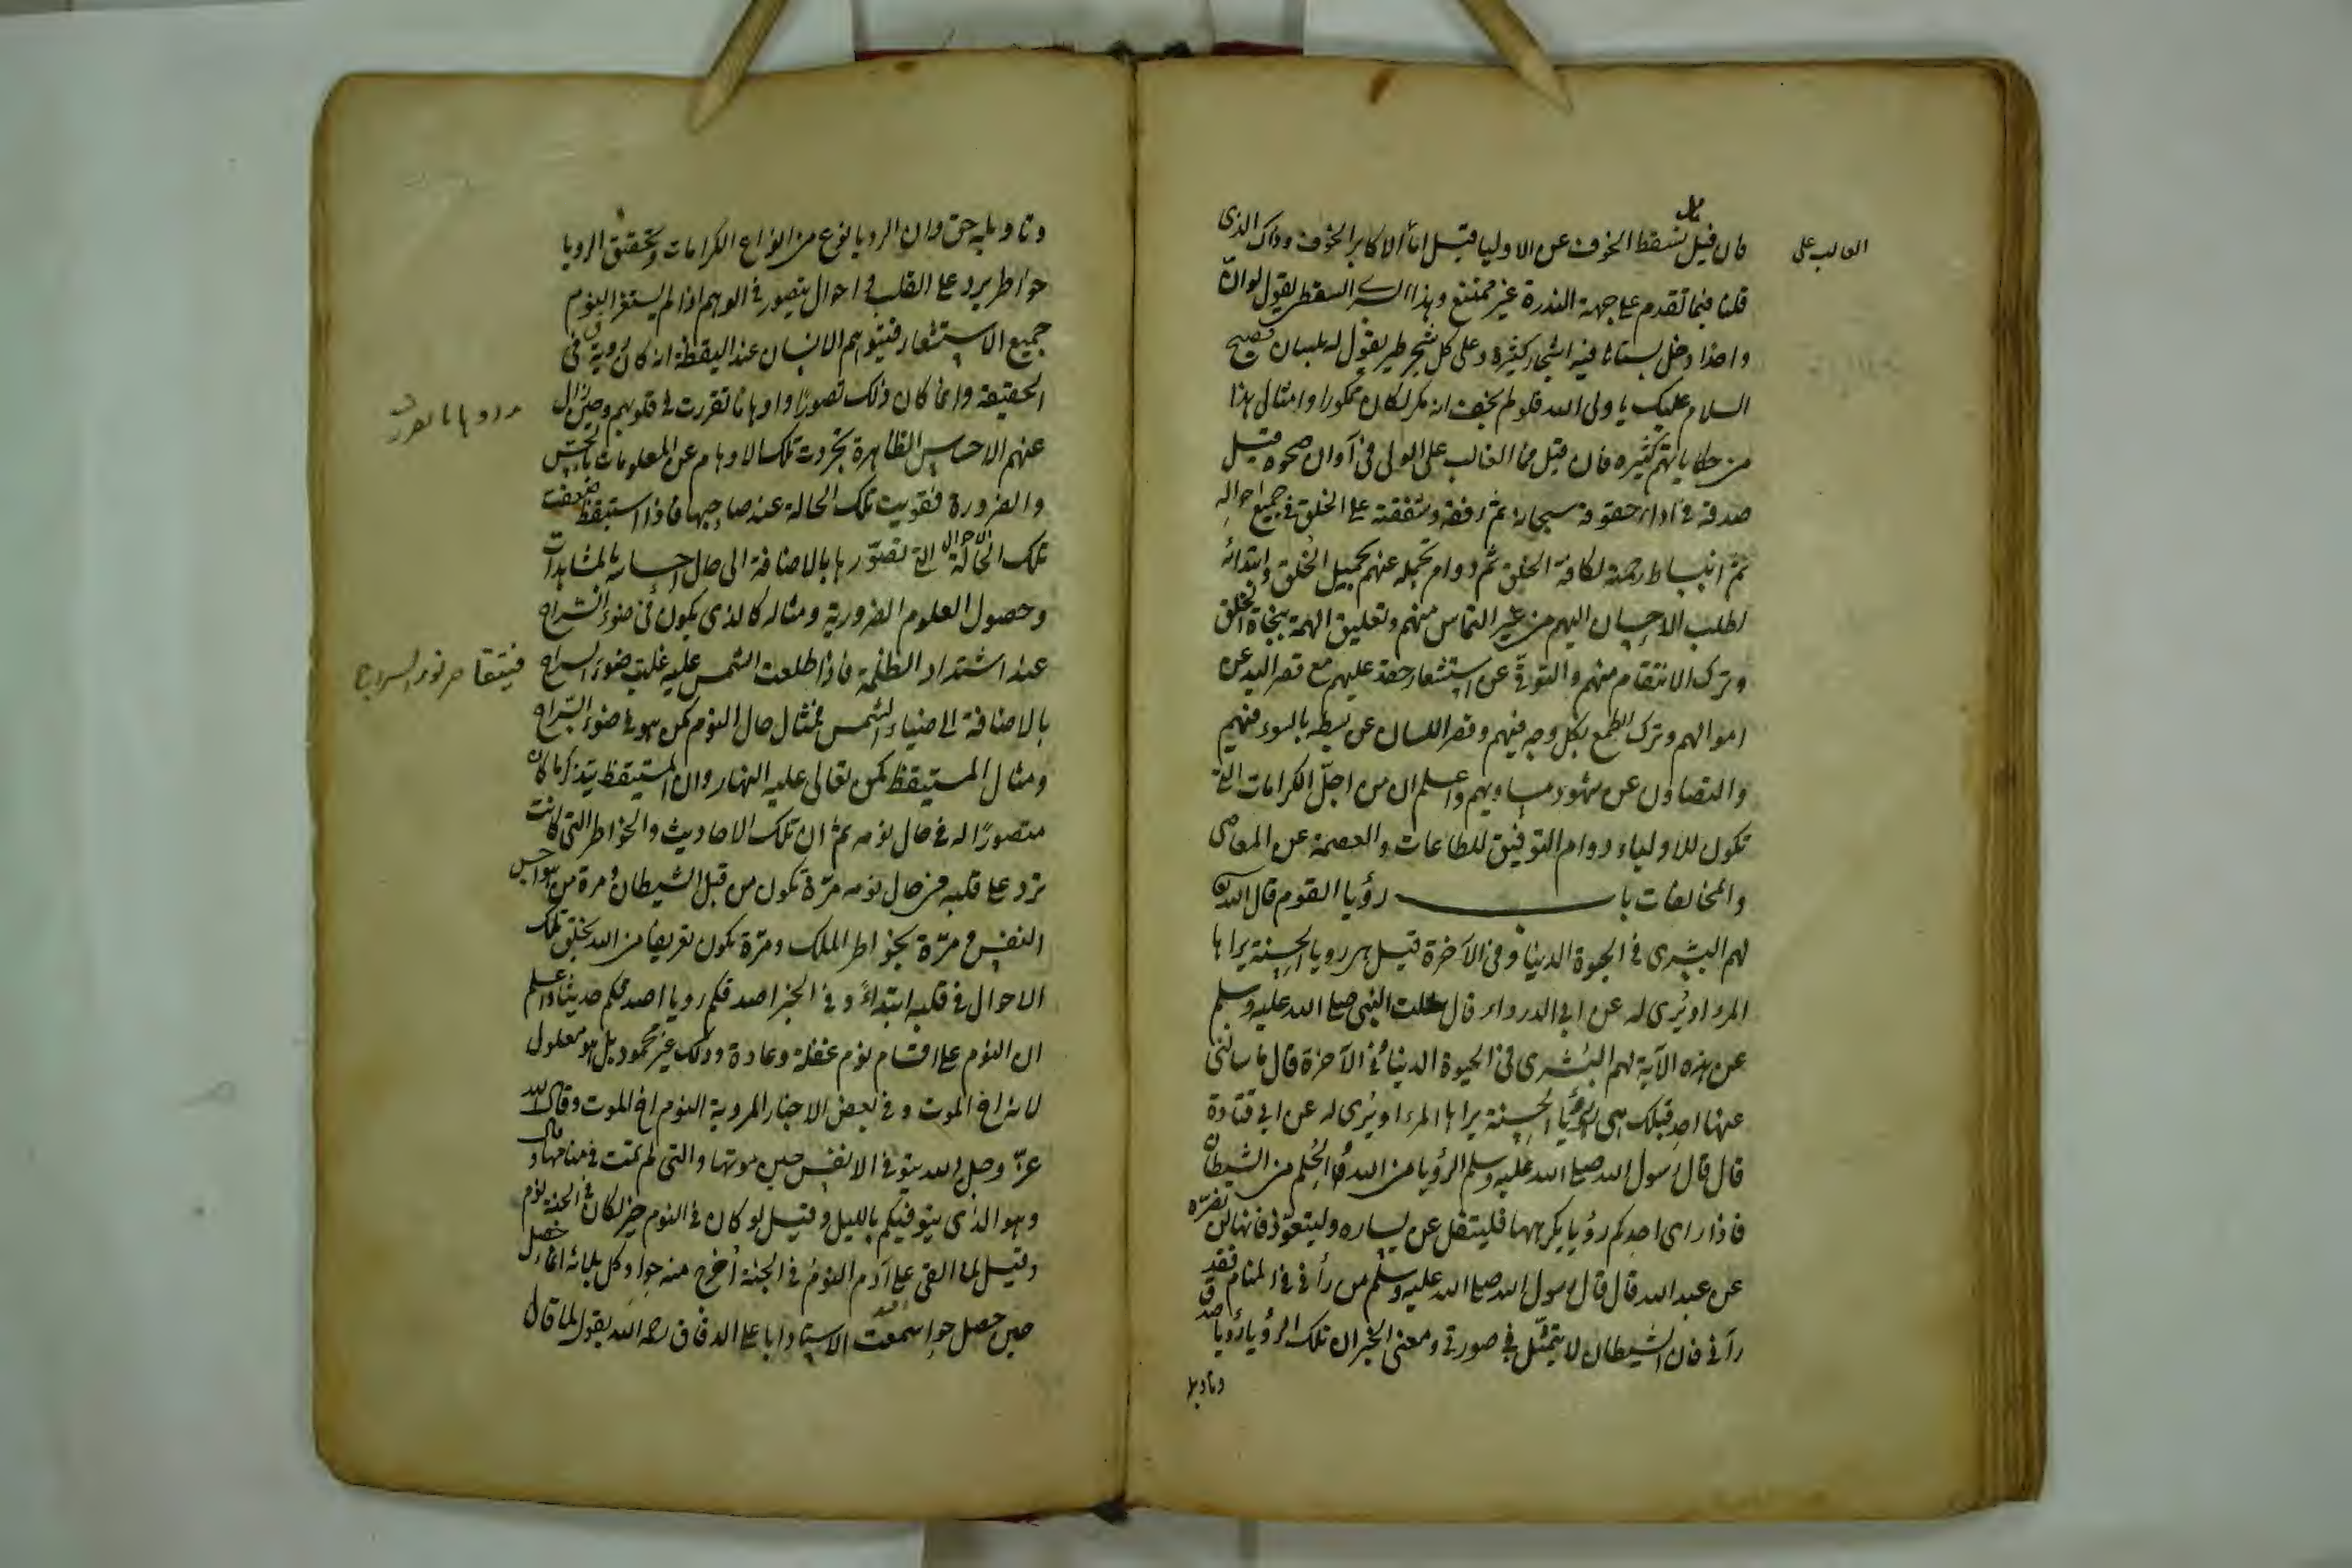 فان قيل هل يسقط الخوف عن الاوليا قيل اما الاكابر الخوف وذاك الذى
الغالب على
قلنا فيما تقدم على جهة الندرة غير ممتنع وهذا السرى السقطى يقول لو ان
واحدا دخل بستانا فيه اشجار كثيرة وعلى كل شجر طير يقول له بلسان فصيح
السلام عليك يا ولى الله فلو لم يخف انه مكر لكان ممكورا وامثال هذا
من حكاياتهم كثيره فان قيل فما الغالب على الولى فى آوان صحوه قيل
صدقه فى اداء حقوقه سبحانه ثم رفقه وشفقته على الخلق فى جميع احواله
ثم انبساط رحمته لكافة الخلق ثم دوام تحمله عنهم بجميل الخلق وابتدائه
لطلب الاحسان اليهم من غير التماس منهم وتعليق الهمة بنجاة الخلق
وترك الانتقام منهم والتوقى عن استشعار حقد عليهم مع قصر اليد عن
اموالهم وترك الطمع بكل وجه فيهم وقصر اللسان عن بسطه بالسوء فيهم
والتصاون عن شهود مساويهم واعلم ان من اجل الكرامات التى
تكون للاولياء دوام التوفيق للطاعات والعصمة عن المعاصى
والمخالفات باب رؤيا القوم قال الله تعالى
لهم البشرى فى الحيوة الدنيا وفى الآخرة قيل هى رويا الحسنة يراها
المرء او يُرى له عن ابى الدرداء قال سألت النبى صلى الله عليه وسلم
عن هذه الآية لهم البشرى فى الحيوة الدنيا وفى الآخرة قال ما سالنى
عنها احد قبلك هى الرؤيا الحسنة يراها المرء او يُرى له عن ابى قتادة
قال قال رسول الله صلى الله عليه وسلم الرؤيا من الله والحُلم من الشيطان
فاذا راى احدكم رؤيا يكرهها فليتفل عن يساره وليتعوذ فانها لن تضرّه
عن عبد الله قال قال رسول الله صلى الله عليه وسلم من رأنى فى المنام فقد
رآنى فان الشيطان لا يتمثّل فى صورتى ومعنى الخبر ان تلك الرؤيا رؤيا صدق
وتاويله
وتاويله حق وان الرويا نوع من انواع الكرامات وتحقيق الرويا
خواطر يرد على القلب واحوال يتصور فى الوهم اذا لم يستغرق النوم
جميع الاستشعار فيتوهم الانسان عند اليقظة انه كان رؤية فى
الحقيقة وانما كان ذلك تصورًا واوهاما تقررت فى قلوبهم وحين زال
عنهم الاحساس الظاهرة تجردت تلك الاوهام عن المعلومات بالحس
والضرورة فقويت تلك الحالة عند صاحبها فاذا استيقظ ضعفت
تلك الاحوال التى تصوّرها بالاضافة الى حال احساسه بالمشاهدات
وحصول العلوم الضرورية ومثاله كالذى يكون فى ضوء السّراج
عند اشتداد الظلمة فاذا طلعت الشمس عليه غلبت ضوء السراج
فيتقاصر نور السراج
بالاضافة الى ضياء الشمس فمثال حال النوم كمن هو فى ضوء السّراج
ومثال المستيقظ كمن تعالى عليه النهار وان المستيقظ يتذكر ما كان
متصورًا له فى حال نومه ثم ان تلك الاحاديث والخواطر التى كانت
ترد على قلبه فى حال نومه مرّة تكون من قبل الشيطان ومرة من هواجس
النفس ومرّة بخواطر الملك ومرّة يكون تعريفا من الله بخلق تلك
الاحوال فى قلبه ابتداءً وفى الخبر اصدقكم رويا اصدقكم حديثا واعلم
ان النوم على اقسام نوم غفلة وعادة وذلك غير محمود بل هو معلول
لانه اخ الموت وفى بعض الاخبار المروية النوم اخ الموت وقال الله
عزّ وجل الله يتوفى الانفس حين موتها والتى لم تمت فى منامها وقال
وهو الذى يتوفيكم بالليل وقيل لو كان فى النوم خير لكان فى الجنة نوم
وقيل لما القى على آدم النوم فى الجنة اُخرج منه حوا وكل بلائه انما حصل
حين حصل حوا سمعت الاستاد ابا على الدقاق رحمه الله يقول لما قال